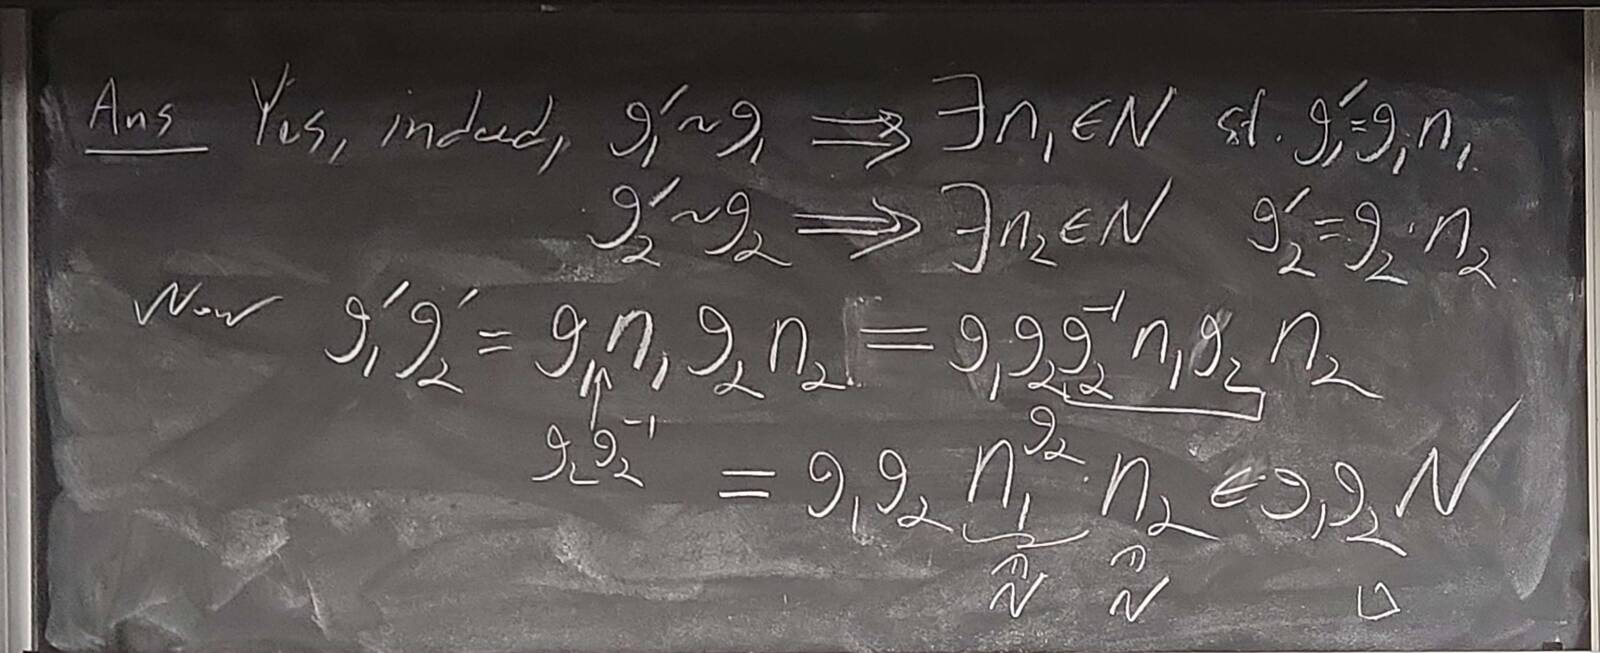 Ans Yes, indeed, g₁′ ~ g₁ ⟹ ∃ n₁ ∈ N st. g₁′ = g₁n₁
g₂′ ~ g₂ ⟹ ∃ n₂ ∈ N g₂′ = g₂·n₂
Now g₁′g₂′ = g₁n₁g₂n₂ = g₁g₂g₂⁻¹n₁g₂n₂
g₂g₂⁻¹
= g₁g₂ n₁^{g₂}·n₂ ∈ g₁g₂N
∩ ∩
N N □